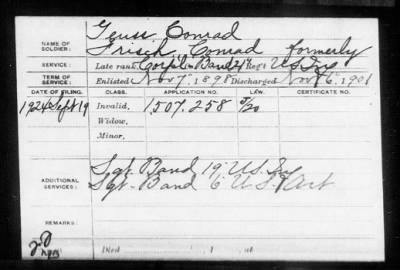 Geuss, Conrad
NAME OF SOLDIER: Frisch, Conrad formerly
SERVICE: Late rank, Corp'l Band 21 Reg't U.S. Inf
TERM OF SERVICE: Enlisted Nov 7, 1898 Discharged Nov 6, 1901
DATE OF FILING. CLASS. APPLICATION NO. LAW. CERTIFICATE NO.
1924 Sept 19 Invalid, 1,507,258
Widow,
Minor,
ADDITIONAL SERVICES: Sgt. Band 19" U.S. Inf
Sgt. Band 6" U.S. Art
REMARKS:
Died , 1 , at